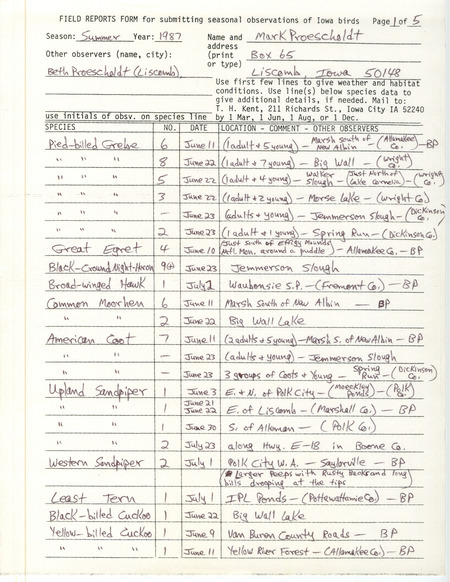 FIELD REPORTS FORM for submitting seasonal observations of Iowa birds Page 1 of 5
Season: Summer Year: 1987 Name and Mark Proescholdt
address
Other observers (name, city): (print Box 65
or type)
Beth Proescholdt (Liscomb) Liscomb, Iowa 50148
Use first few lines to give weather and habitat
conditions. Use line(s) below species data to
give additional details, if needed. Mail to:
T. H. Kent, 211 Richards St., Iowa City IA 52240
use initials of obsv. on species line by 1 Mar, 1 Jun, 1 Aug, or 1 Dec.
SPECIES NO. DATE LOCATION - COMMENT - OTHER OBSERVERS
Pied-billed Grebe 6 June 11 (1 adult + 5 young) - Marsh south of New Albin - (Allamakee Co.) - BP
" " " 8 June 22 (1 adult + 7 young) - Big Wall - (Wright Co.)
" " " 5 June 22 (1 adult + 4 young) - Walker Slough - (Just North of Lake Cornelia) - (Wright Co.)
" " " 3 June 22 (1 adult + 2 young) - Morse Lake - (Wright Co)
" " " — June 23 (adults + young) - Jemmerson Slough - (Dickinson Co.)
" " " 2 June 23 (1 adult + 1 young) - Spring Run - (Dickinson Co.)
Great Egret 4 June 10 (Just south of Effigy Mounds Natl. Mon. around a puddle) - Allamakee Co. - BP
Black-Crowned Night-Heron 9(+) June 23 Jemmerson Slough
Broad-winged Hawk 1 July 2 Waubonsie S.P. - (Fremont Co.) - BP
Common Moorhen 6 June 11 Marsh South of New Albin - BP
" " 2 June 22 Big Wall Lake
American Coot 7 June 11 (2 adults + 5 young) - Marsh S. of New Albin - BP
" " — June 23 (adults + young) - Jemmerson Slough
" " — June 23 3 groups of Coots + Young - Spring Run - (Dickinson Co.)
Upland Sandpiper 1 June 3 E. + N. of Polk City - (Moeckley Ponds) - (Polk Co.)
" " 1 June 21 June 22 E. of Liscomb - (Marshall Co.) - BP
" " 1 June 30 S. of Alleman - (Polk Co.)
" " 2 July 23 along Hwy. E-18 in Boone Co.
Western Sandpiper 2 July 1 Polk City W.A. - Saylorville - BP
(Larger Peeps with Rusty Backs and long
bills drooping at the tips
Least Tern 1 July 1 IPL Ponds - (Pottawattamie Co) - BP
Black-billed Cuckoo 1 June 22 Big Wall Lake
Yellow-billed Cuckoo 1 June 9 Van Buren County Roads - BP
" " " 1 June 11 Yellow River Forest - (Allamakee Co.) - BP